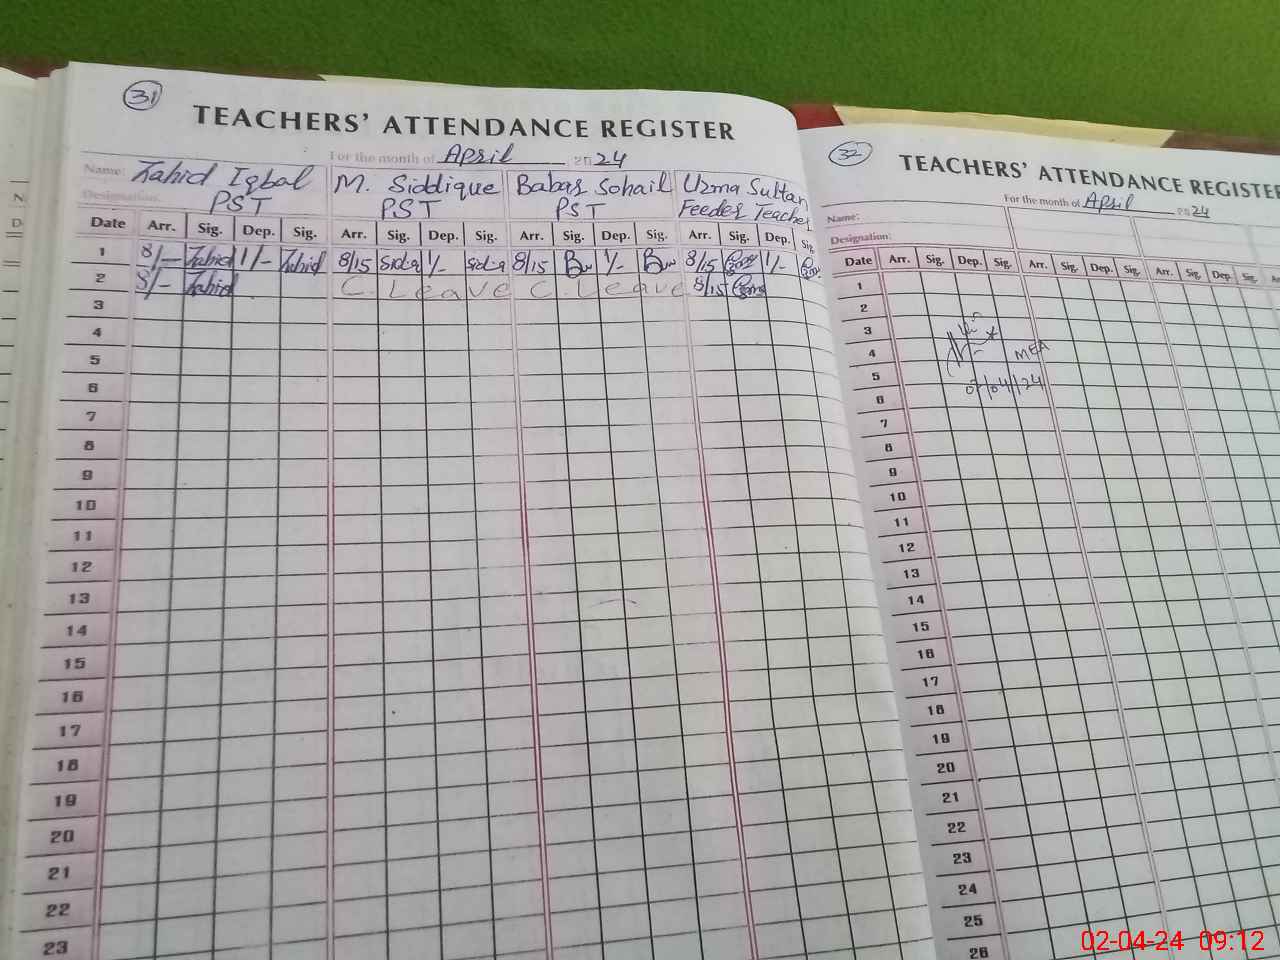 31
TEACHERS' ATTENDANCE REGISTER
For the month of April 2024
Name: Zahid Iqbal M. Siddique Babar Sohail Uzma Sultan
Designation: PST PST PST Feeder Teacher
Date Arr. Sig. Dep. Sig. Arr. Sig. Dep. Sig. Arr. Sig. Dep. Sig. Arr. Sig. Dep. Sig.
1 8/- Zahid 1/- Zahid 8/15 1/- 8/15 1/- 8/15 1/-
2 8/- Zahid C. Leave C. Leave 8/15
3
4
5
6
7
8
9
10
11
12
13
14
15
16
17
18
19
20
21
22
23
32
TEACHERS' ATTENDANCE REGISTER
For the month of April 2024
Name:
Designation:
Date Arr. Sig. Dep. Sig. Arr. Sig. Dep. Sig. Arr. Sig. Dep. Sig.
1
2
3
4 MEA
5
6
7
8
9
10
11
12
13
14
15
16
17
18
19
20
21
22
23
24
25
26
02-04-24 09:12